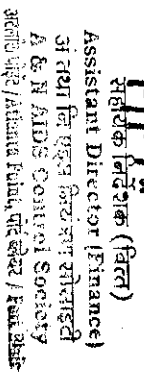 सहायक निदेशक (वित्त)
Assistant Director (Finance)
अं तथा नि एड्स नियंत्रण सोसाइटी
A & N AIDS Control Society
अटलांटा पॉइंट, पोर्ट ब्लेयर / Atlanta Point, Port Blair